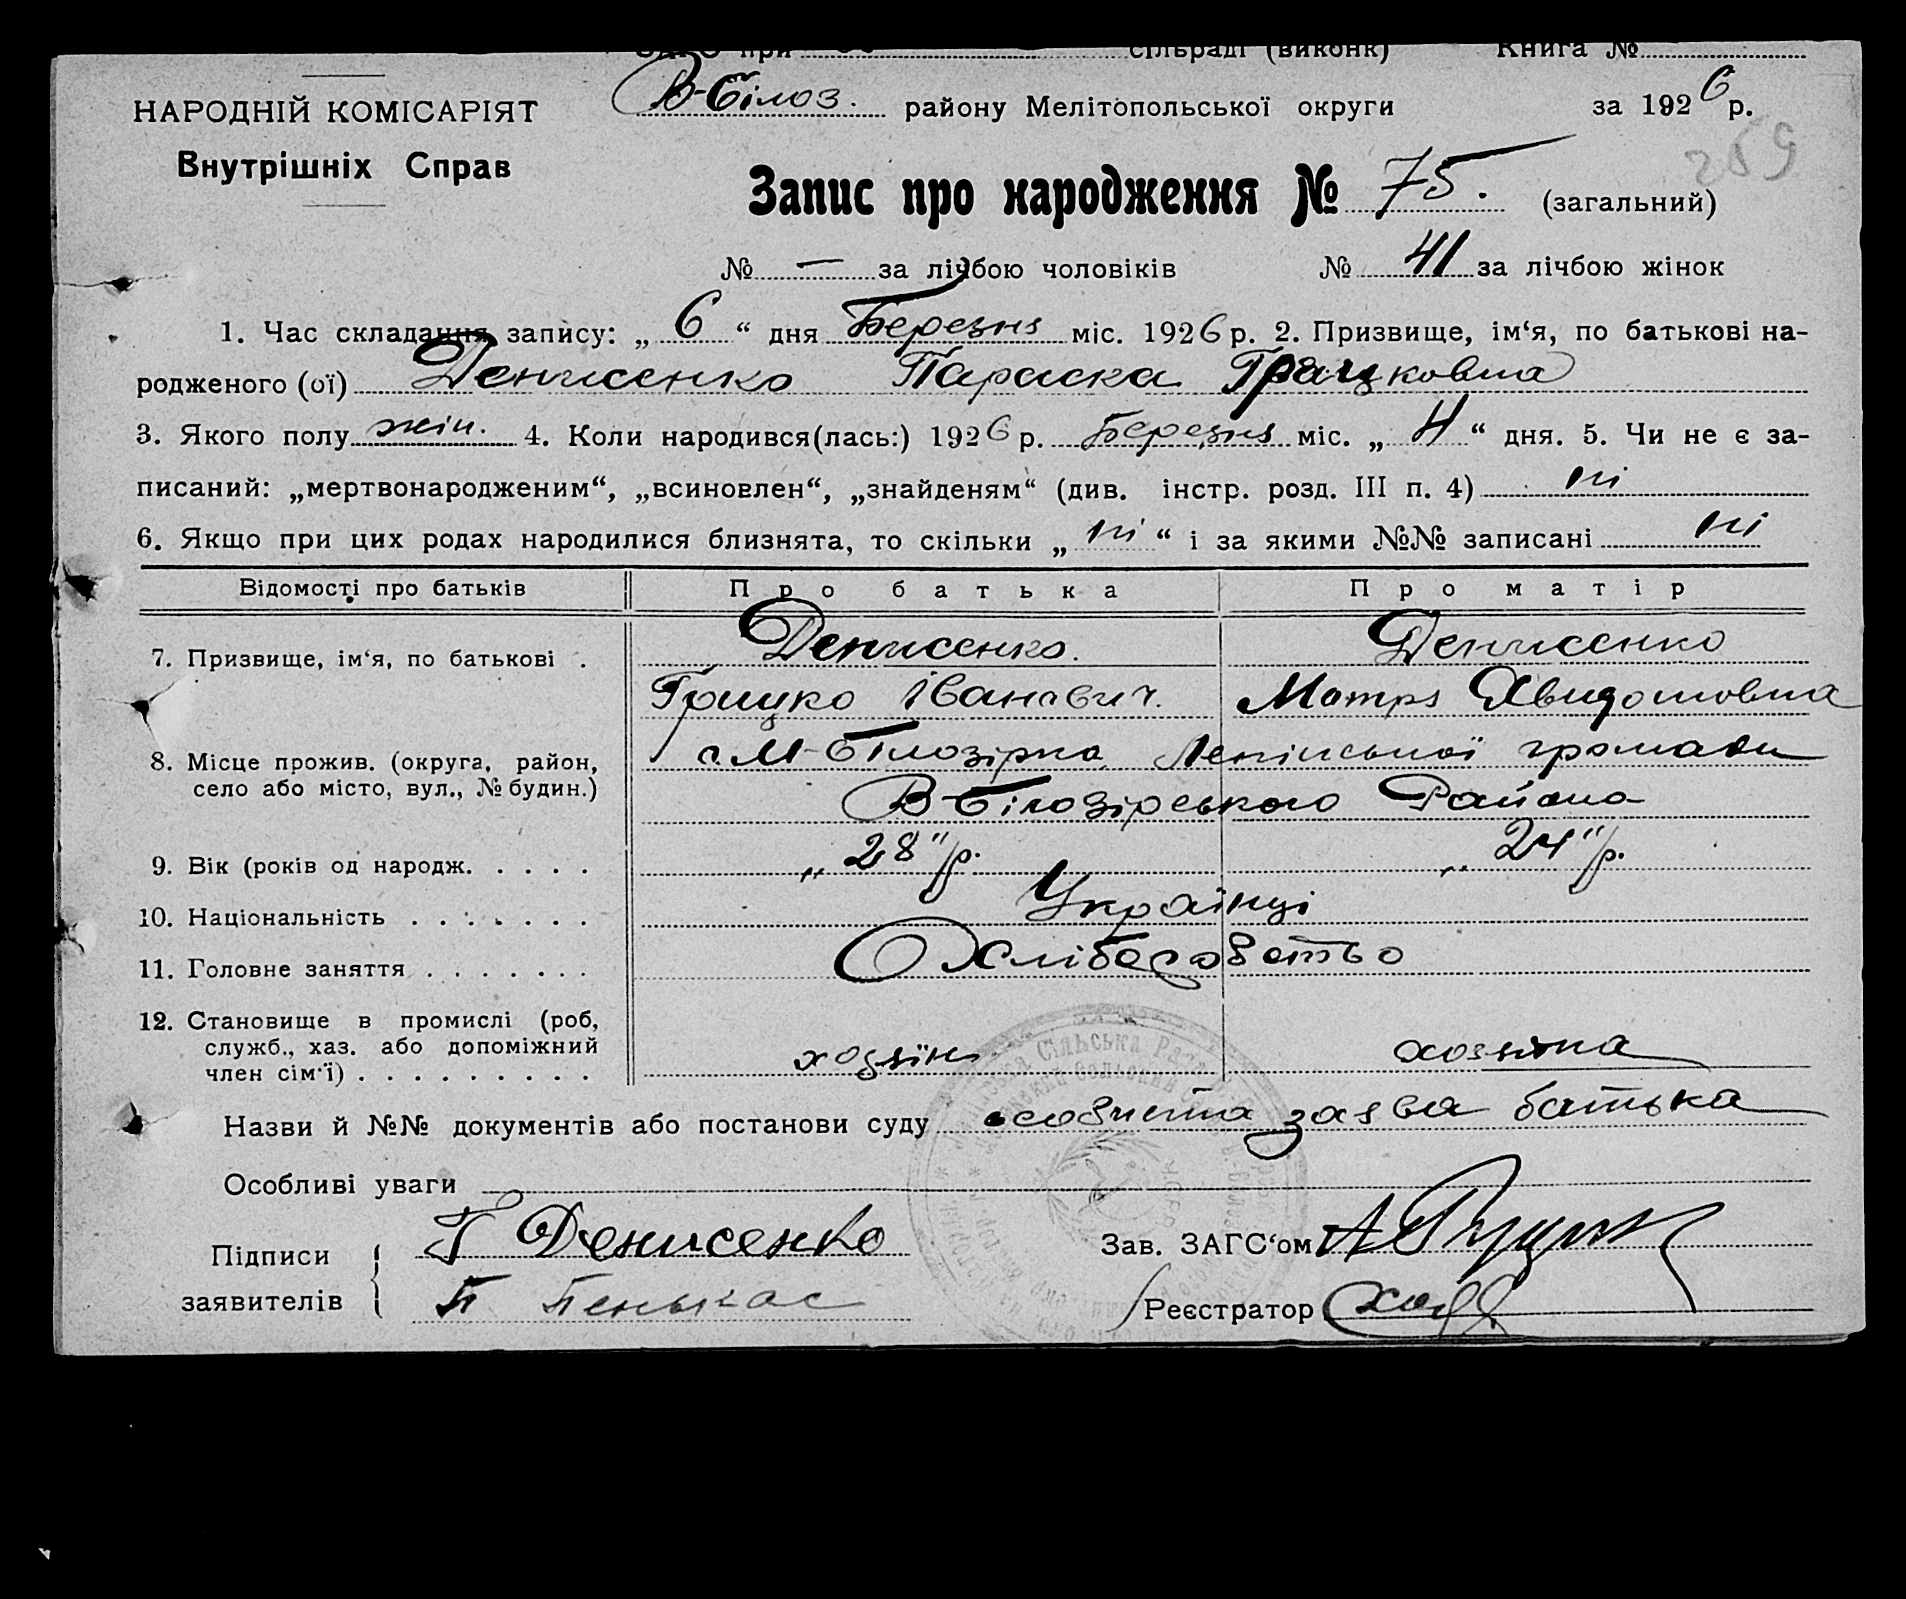 ЗАГС при сільраді (виконк) Книга №
НАРОДНІЙ КОМІСАРІЯТ
Внутрішніх Справ
В-Білоз. району Мелітопольської округи за 1926 р.
259
Запис про народження № 75. (загальний)
№ — за лічбою чоловіків № 41 за лічбою жінок
1. Час складання запису: „ 6 “ дня Березня міс. 1926 р. 2. Призвище, ім‘я, по батькові на-
родженого (ої) Денисенко Параска Грицковна
3. Якого полу жін. 4. Коли народився(лась:) 1926 р. Березня міс. „ 4 “ дня. 5. Чи не є за-
писаний: „мертвонародженим“, „всиновлен“, „знайденям“ (див. інстр. розд. III п. 4) ні
6. Якщо при цих родах народилися близнята, то скільки „ ні “ і за якими №№ записані ні
Відомості про батьків Про батька Про матір
7. Призвище, ім‘я, по батькові . Денисенко. Денисенко
Грицко Іванович. Мотря Явидомовна
8. Місце прожив. (округа, район, с. М-Білозірка Ленінської громади
село або місто, вул., № будин.) В-Білозірського Району
9. Вік (років од народж. . . . . „ 28 "/р. „ 24 "/р.
10. Національність . . . . . . . Українці
11. Головне заняття . . . . . . . Хліборобство
12. Становище в промислі (роб,
служб., хаз. або допоміжний хозяїн хозяйка
член сім‘ї) . . . . . . . . .
Назви й №№ документів або постанови суду особиста заява батька
Особливі уваги
Підписи Г Денисенко Зав. ЗАГС‘ом
заявителів П Реєстратор